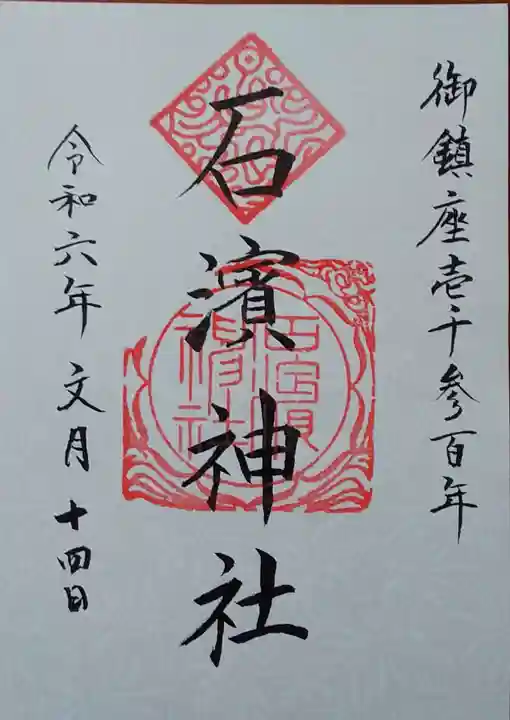 御鎮座壱千参百年
石濱神社
令和六年 文月 十四日